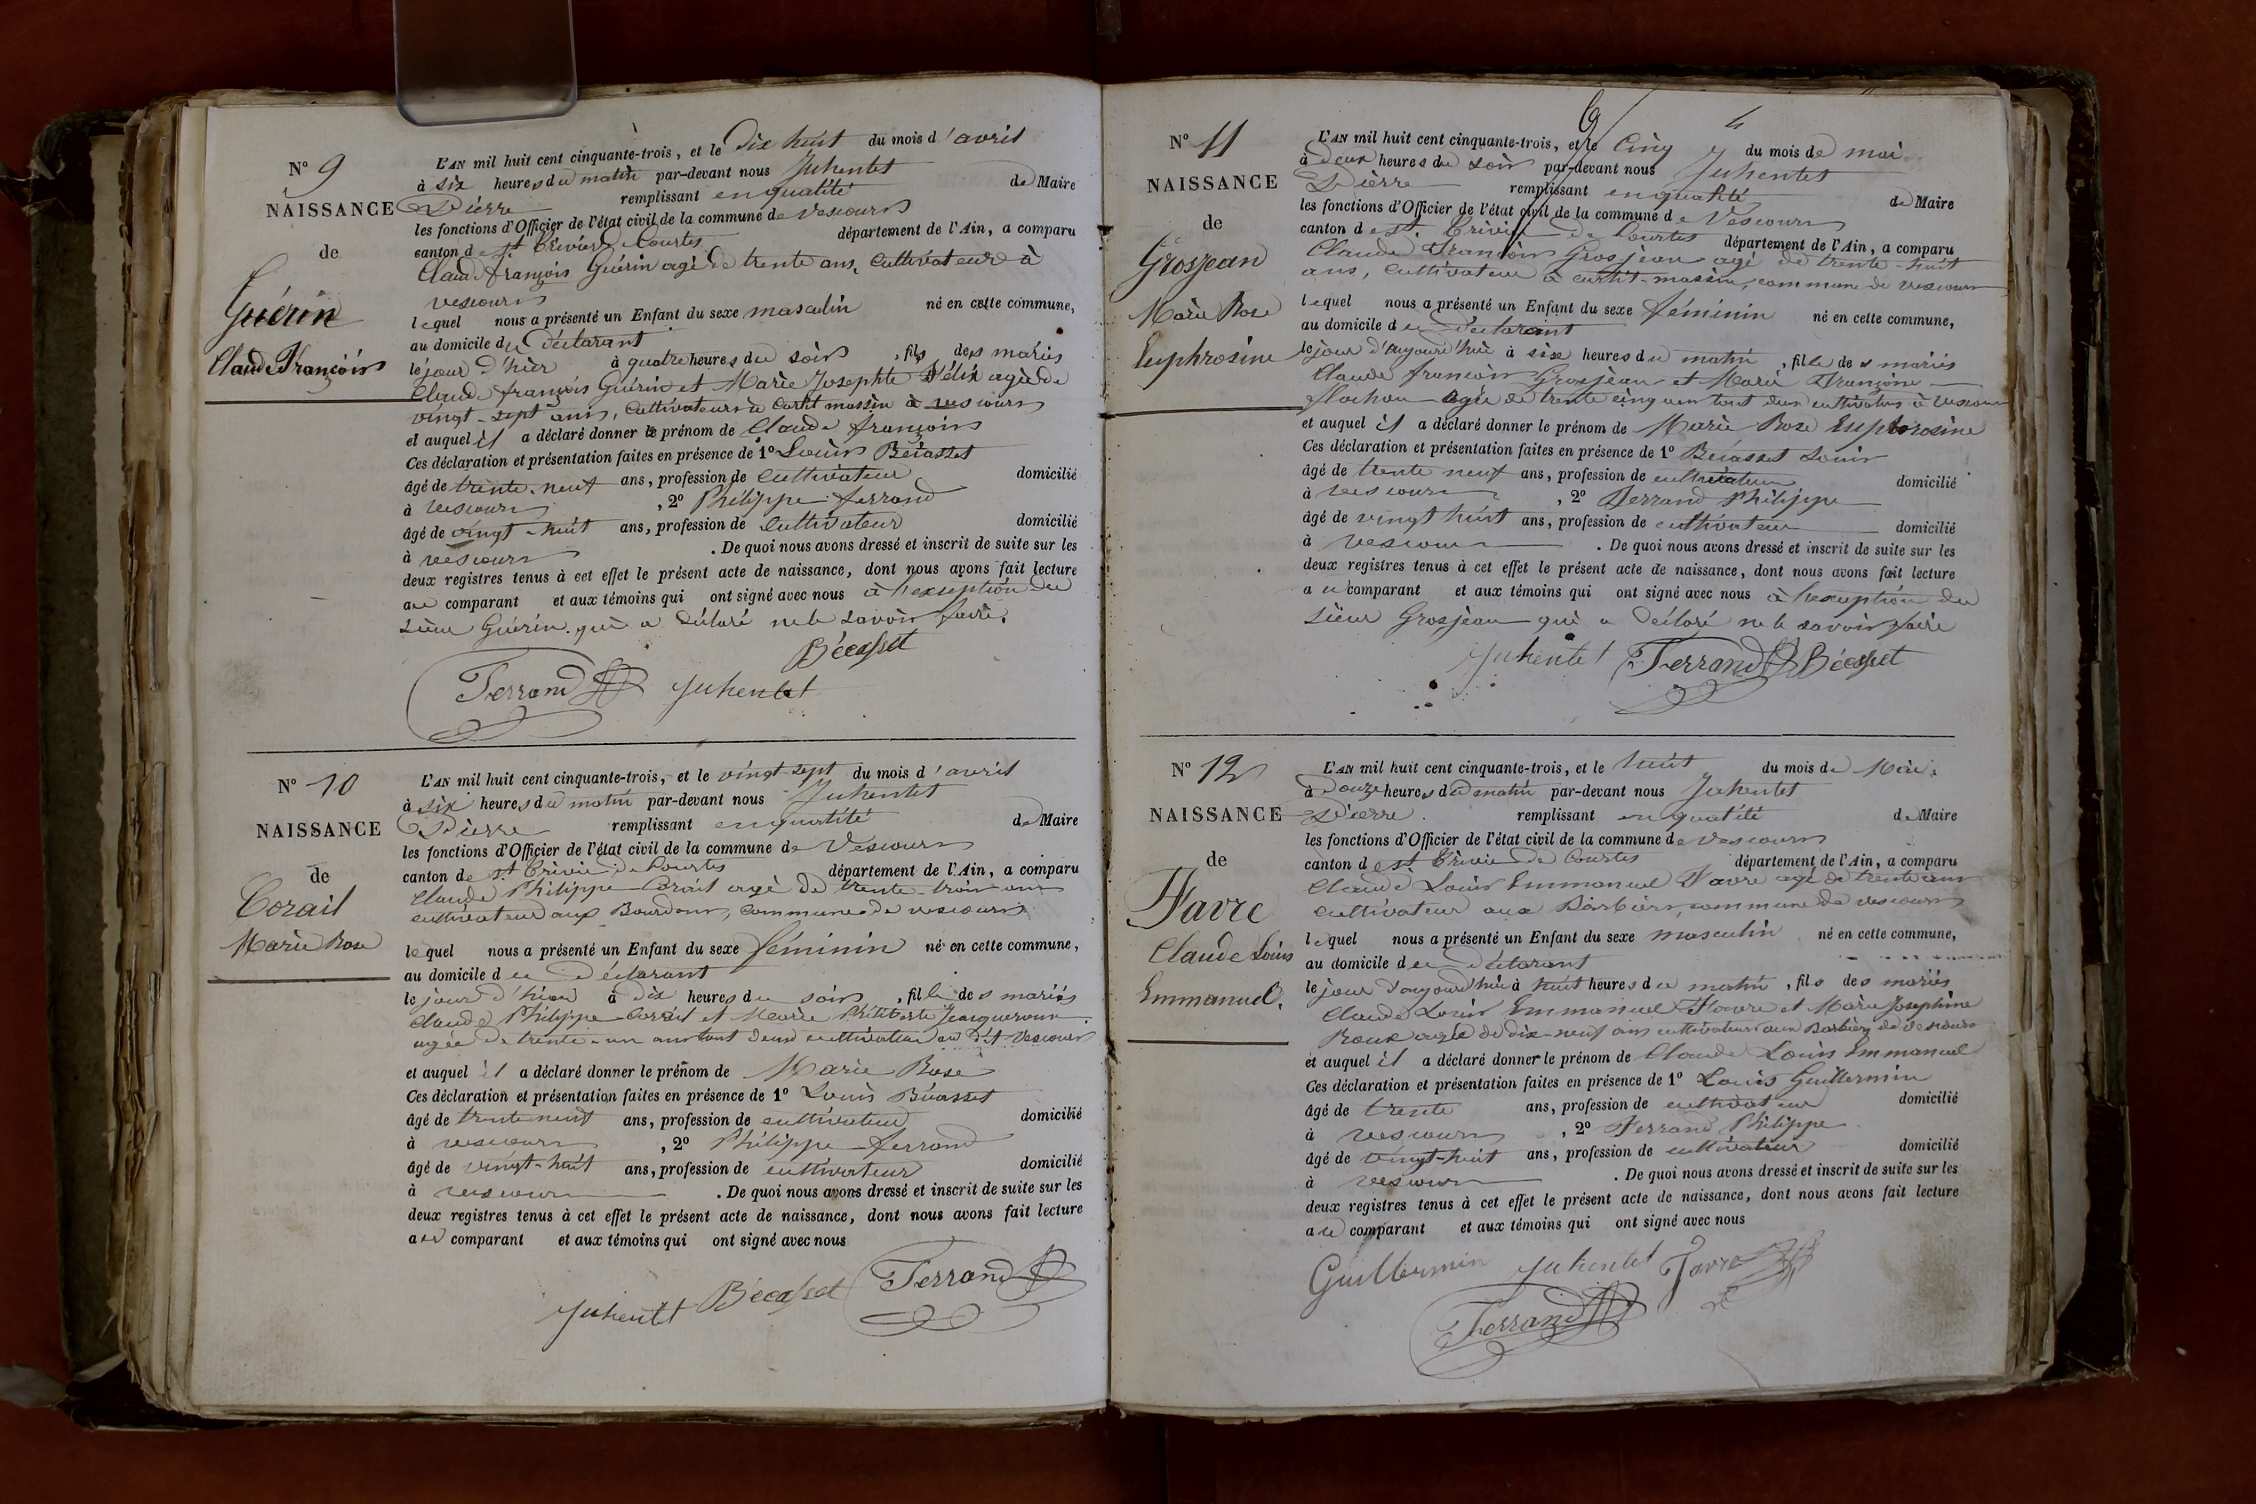 N° 9
NAISSANCE
de
Guérin
Claude François
L'AN mil huit cent cinquante-trois, et le Dix huit du mois d'avril
à six heures du matin par-devant nous Juhentet
Pierre remplissant en qualité de Maire
les fonctions d'Officier de l'état civil de la commune de Vescours
canton de St Trivier de Courtes département de l'Ain, a comparu
Claude françois Guérin agé de trente ans, cultivateur à
vescours
lequel nous a présenté un Enfant du sexe masculin né en cette commune,
au domicile du Déclarant
le jour d'hier à quatre heures du soir, fils des mariés
Claude françois Guérin et Marie Josephte Félix agée de
vingt-sept ans, cultivateurs à curtit massin à vescours
et auquel il a déclaré donner le prénom de Claude françois
Ces déclaration et présentation faites en présence de 1° Louis Bécasset
âgé de trente-neuf ans, profession de cultivateur domicilié
à vescours, 2° Philippe ferrand
âgé de vingt-huit ans, profession de cultivateur domicilié
à vescours. De quoi nous avons dressé et inscrit de suite sur les
deux registres tenus à cet effet le présent acte de naissance, dont nous avons fait lecture
au comparant et aux témoins qui ont signé avec nous à l'exseption du
sieur Guérin qui a déclaré ne le savoir faire.
Bécasset
Ferrand Juhentet
N° 10
NAISSANCE
de
Corail
Marie Rose
L'AN mil huit cent cinquante-trois, et le vingt-sept du mois d'avril
à six heures du matin par-devant nous Juhentet
Pierre remplissant en qualité de Maire
les fonctions d'Officier de l'état civil de la commune de Vescours
canton de St Trivier de Courtes département de l'Ain, a comparu
Claude Philippe Corail agé de trente-trois ans
cultivateur aux Bourdons, commune de vescours
lequel nous a présenté un Enfant du sexe féminin né en cette commune,
au domicile du Déclarant
le jour d'hier à dix heures du soir, fille des mariés
Claude Philippe Corail et Marie Philiberte
agée de trente-un ans tout deux cultivateur au dit Vescours
et auquel il a déclaré donner le prénom de Marie Rose
Ces déclaration et présentation faites en présence de 1° Louis Bécasset
âgé de trente neuf ans, profession de cultivateur domicilié
à vescours, 2° Philippe ferrand
âgé de vingt-huit ans, profession de cultivateur domicilié
à vescours. De quoi nous avons dressé et inscrit de suite sur les
deux registres tenus à cet effet le présent acte de naissance, dont nous avons fait lecture
au comparant et aux témoins qui ont signé avec nous
Juhentet Bécasset Ferrand
N° 11
NAISSANCE
de
Grosjean
Marie Rose
Euphrosine
L'AN mil huit cent cinquante-trois, et le cinq du mois de mai
à Deux heures du soir par-devant nous Juhentet
Pierre remplissant en qualité de Maire
les fonctions d'Officier de l'état civil de la commune de Vescours
canton de St Trivier de Courtes département de l'Ain, a comparu
Claude François Grosjean agé de trente-huit
ans, cultivateur à curtit-massin, commune de vescours
lequel nous a présenté un Enfant du sexe féminin né en cette commune,
au domicile du Déclarant
le jour d'aujourd'hui à six heures du matin, fille des mariés
Claude françois Grosjean et Marie Françoise
agée de trente cinq ans tout deux cultivateurs à vescours
et auquel il a déclaré donner le prénom de Marie Rose Euphrosine
Ces déclaration et présentation faites en présence de 1° Bécasset Louis
âgé de trente neuf ans, profession de cultivateur domicilié
à vescours, 2° Ferrand Philippe
âgé de vingt huit ans, profession de cultivateur domicilié
à vescours. De quoi nous avons dressé et inscrit de suite sur les
deux registres tenus à cet effet le présent acte de naissance, dont nous avons fait lecture
au comparant et aux témoins qui ont signé avec nous à l'exseption du
sieur Grosjean qui a déclaré ne le savoir faire
Juhentet Ferrand Bécasset
N° 12
NAISSANCE
de
Favre
Claude Louis
Emmanuel.
L'AN mil huit cent cinquante-trois, et le huit du mois de Mai.
à Douze heures du matin par-devant nous Juhentet
Pierre remplissant en qualité de Maire
les fonctions d'Officier de l'état civil de la commune de vescours
canton de St Trivier de Courtes département de l'Ain, a comparu
Claude Louis Emmanuel Favre agé de trente ans
cultivateur aux Barbiers, commune de vescours
lequel nous a présenté un Enfant du sexe masculin né en cette commune,
au domicile du Déclarant
le jour d'aujourd'hui à huit heures du matin, fils des mariés
Claude Louis Emmanuel Favre et Marie Josephine
Roux agée de dix-neuf ans cultivateurs aux Barbiers de vescours
et auquel il a déclaré donner le prénom de Claude Louis Emmanuel
Ces déclaration et présentation faites en présence de 1° Louis Guillermin
âgé de trente ans, profession de cultivateur domicilié
à vescours, 2° Ferrand Philippe
âgé de vingt-huit ans, profession de cultivateur domicilié
à vescours. De quoi nous avons dressé et inscrit de suite sur les
deux registres tenus à cet effet le présent acte de naissance, dont nous avons fait lecture
au comparant et aux témoins qui ont signé avec nous
Guillermin Juhentet Favre
Ferrand